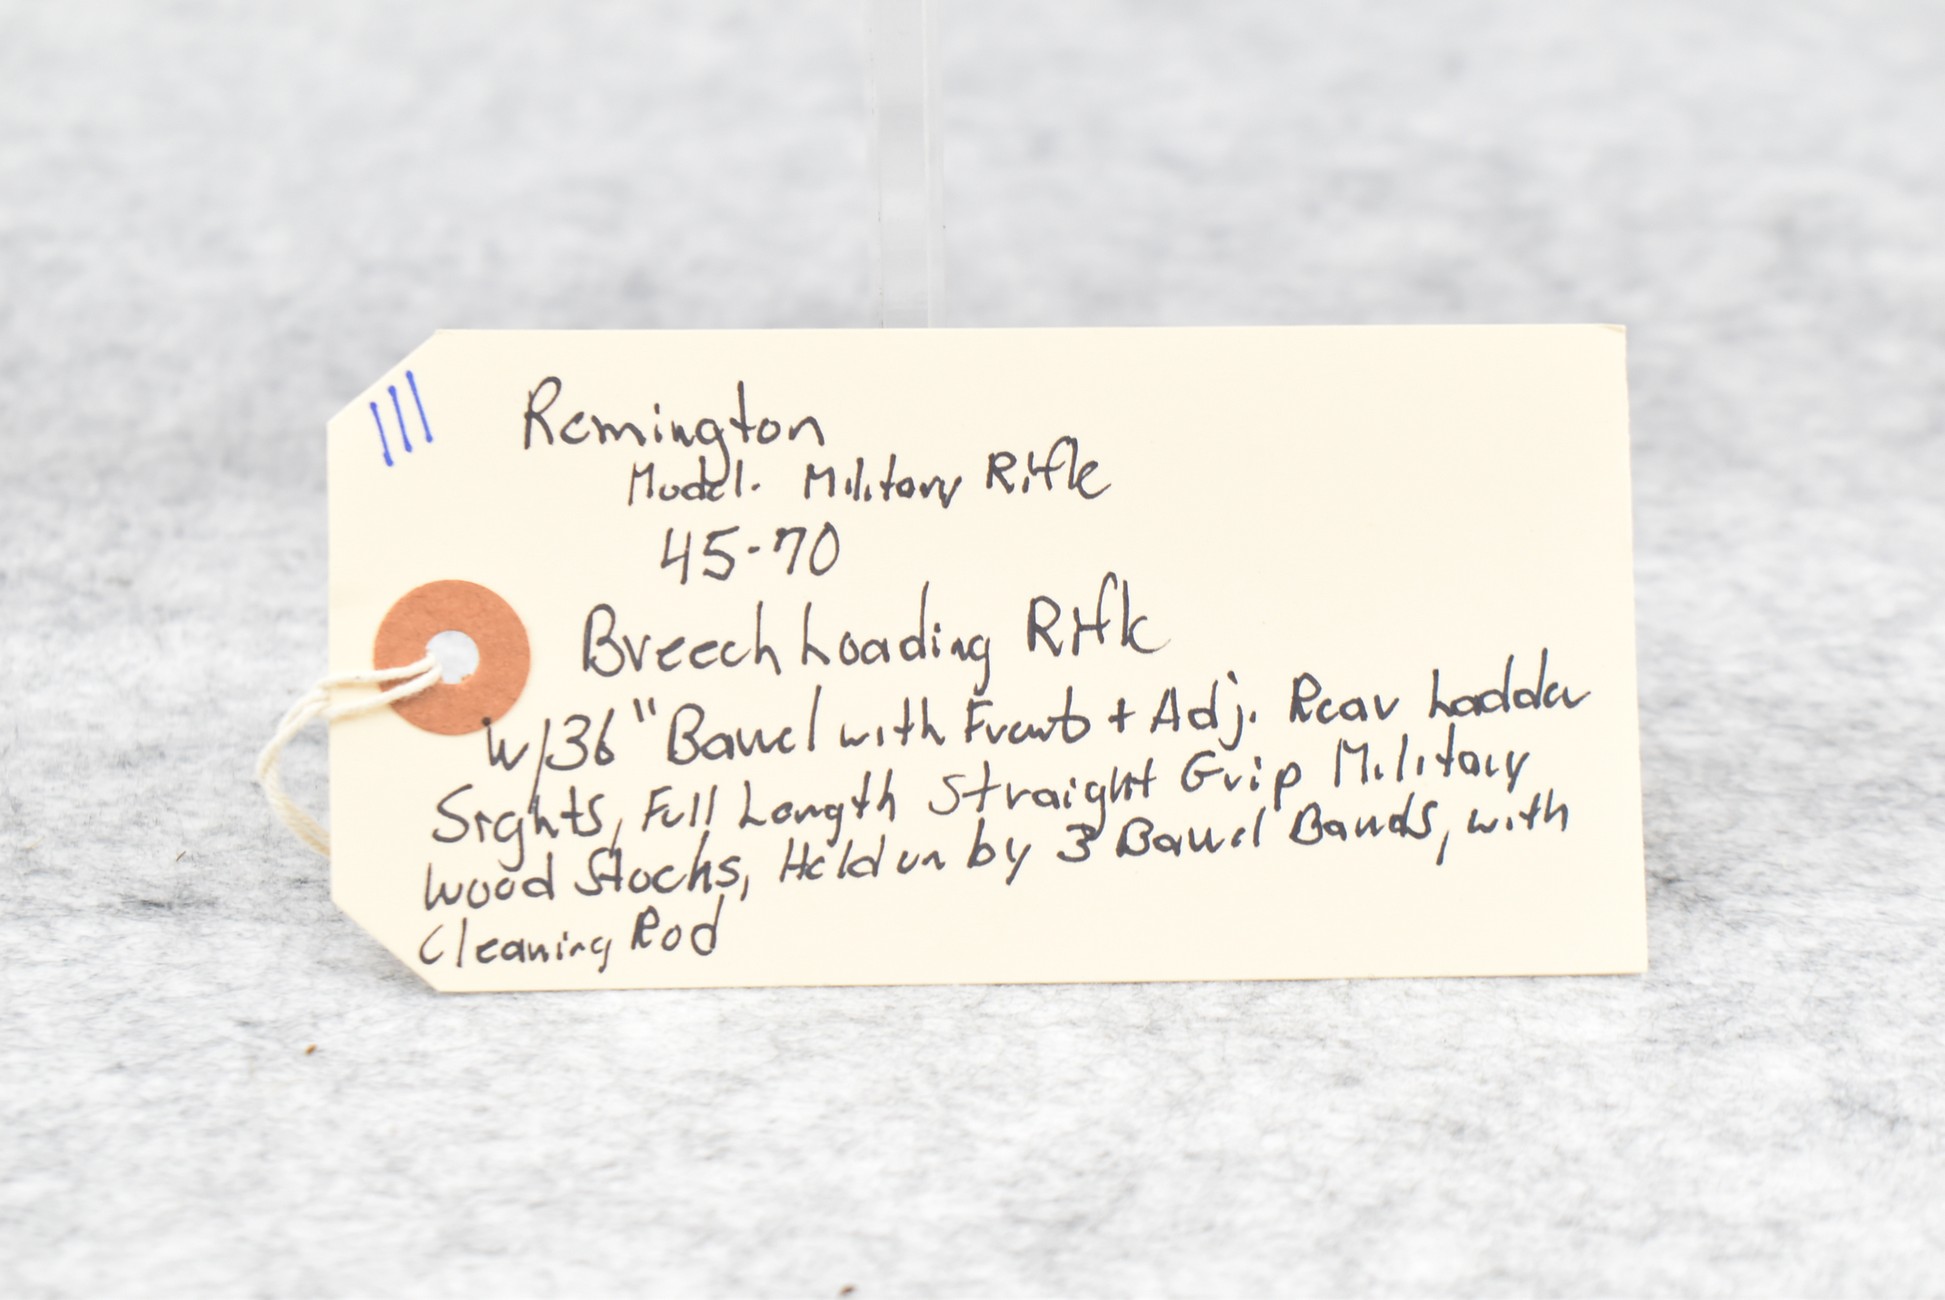 111
Remington
Model. Military Rifle
45-70
Breech Loading Rifle
W/36" Barrel with Front + Adj. Rear Ladder
Sights, Full Length Straight Grip Military
Wood Stocks, Held on by 3 Barrel Bands, with
Cleaning Rod